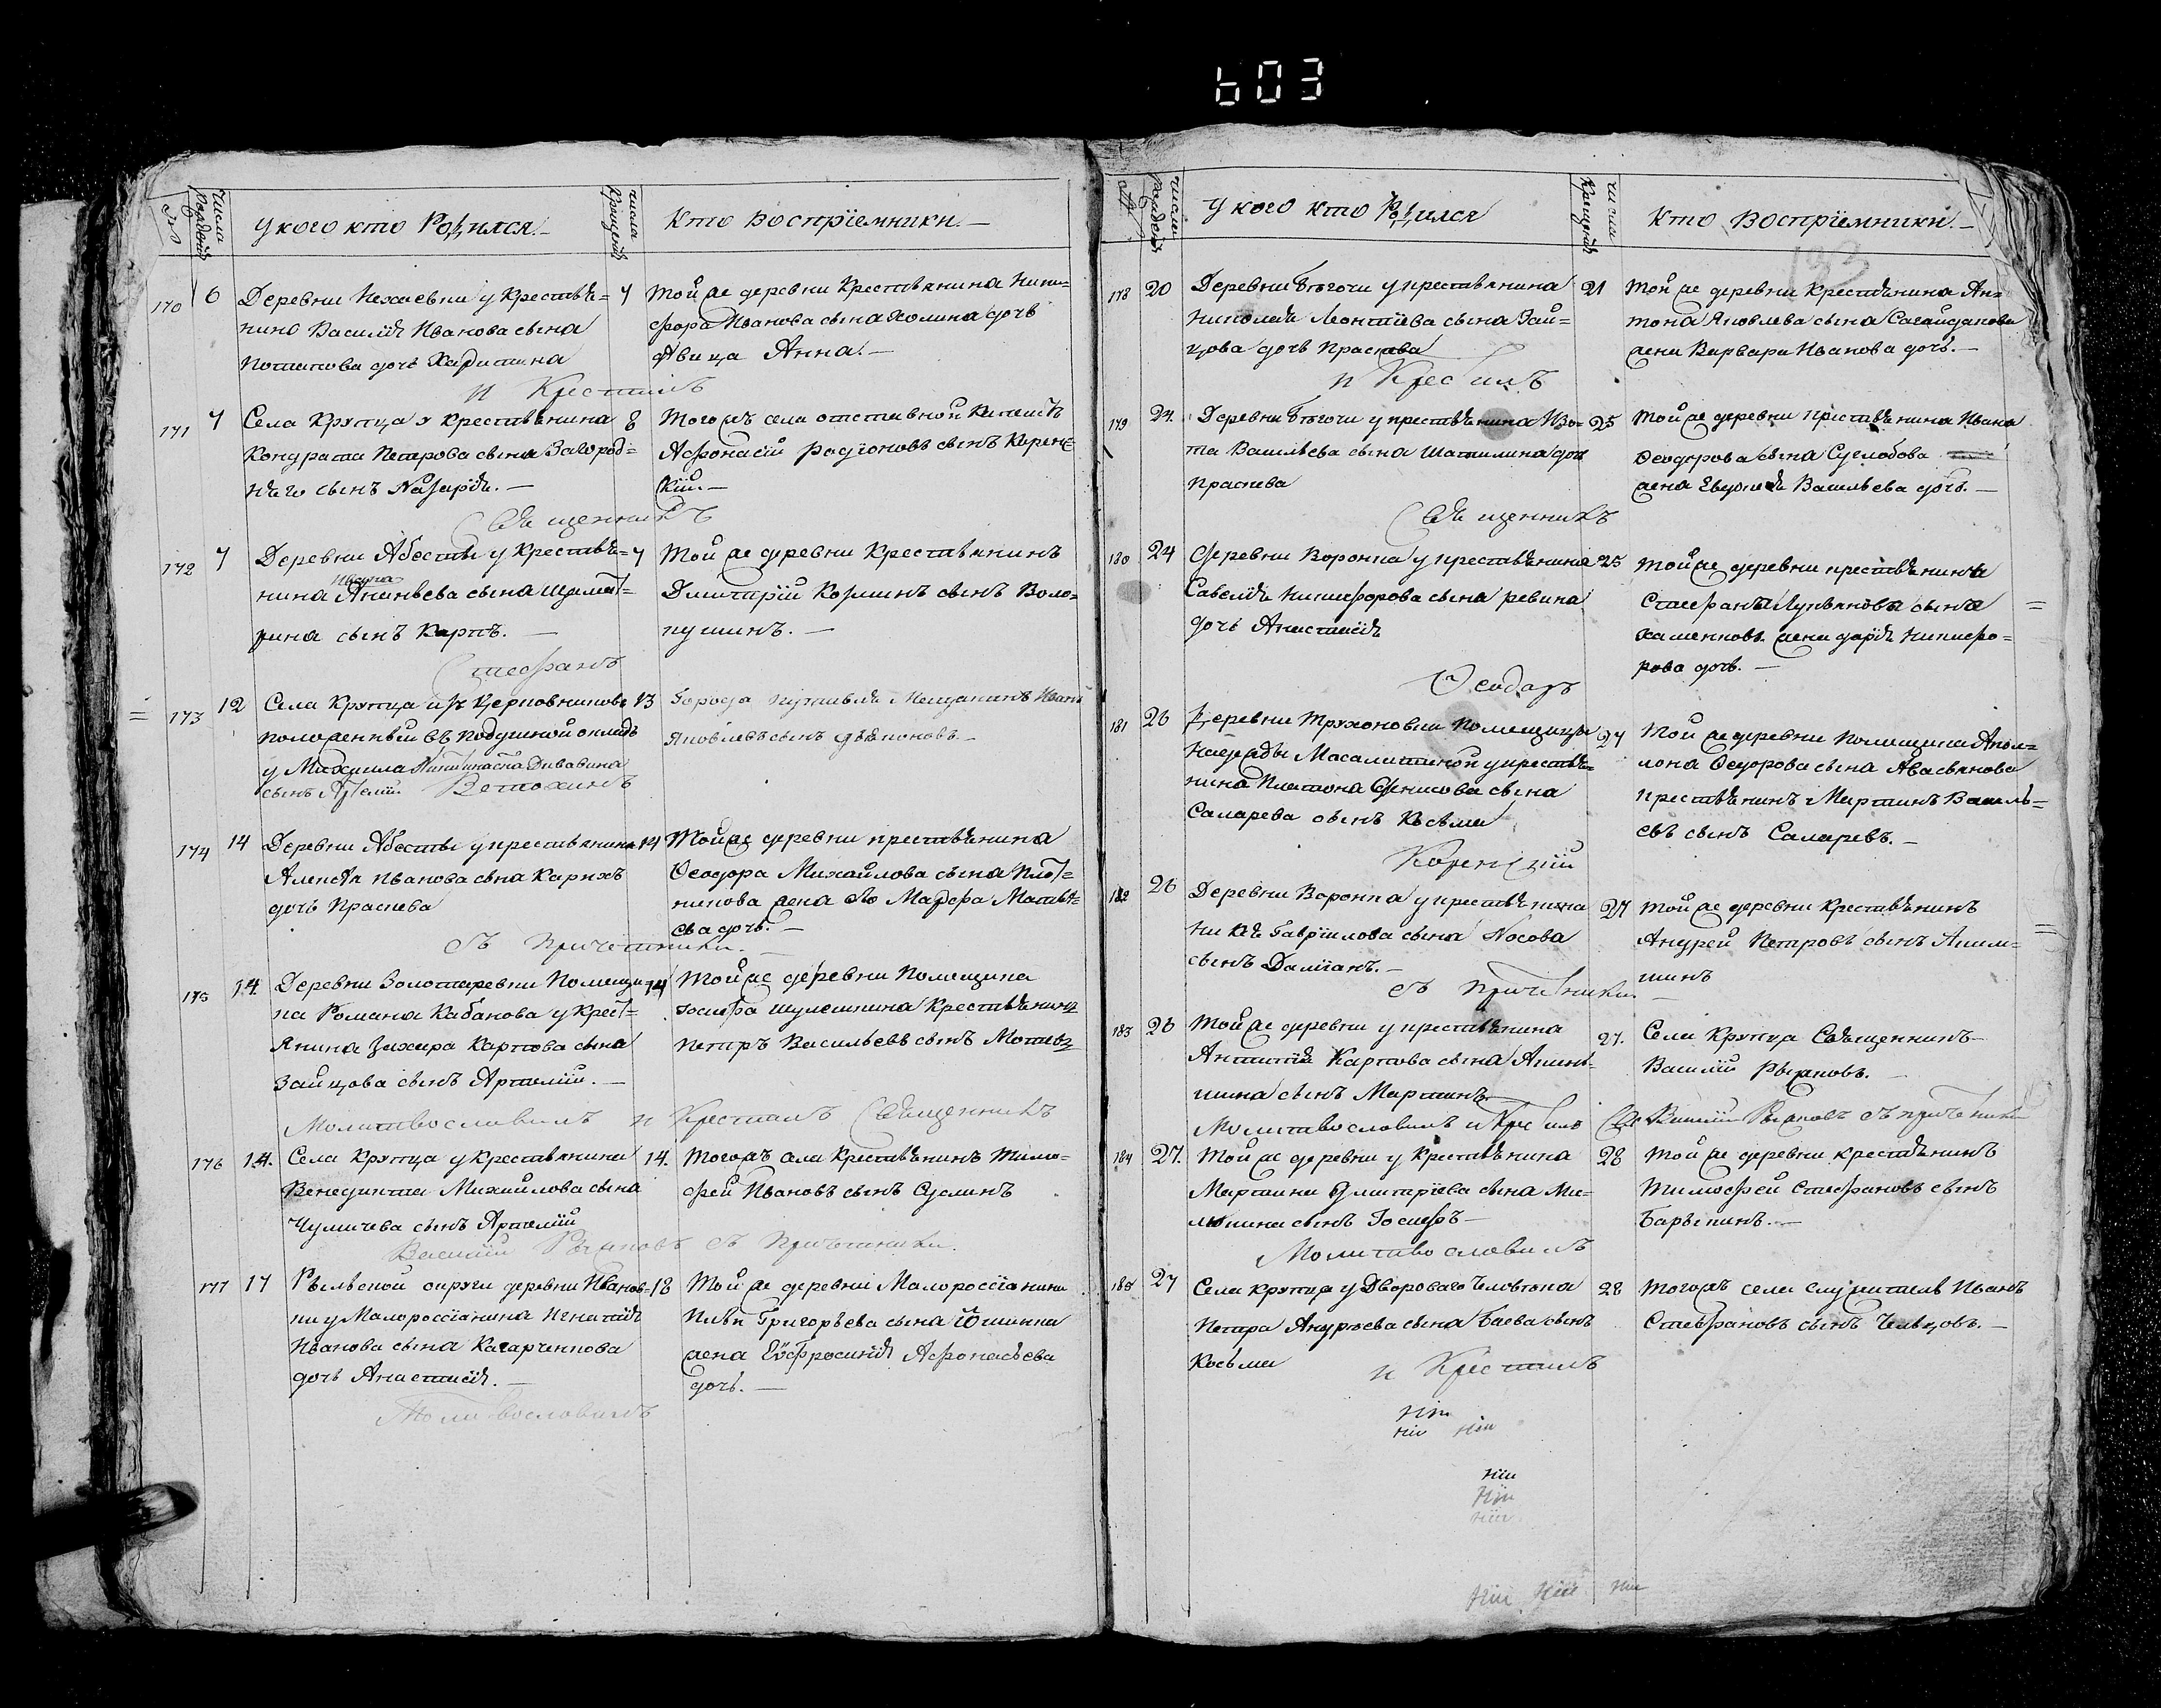 603
№
числа рожденiя
У кого кто Родился.
числа крещенiя
Кто воспрiемники.
170 6 Деревни Нехаевки у крестья=
нина Василiя Иванова сына
Потапова дочь Харитина
7 Той же деревни крестьянина Ники=
фора Иванова сына Холина дочь
девица Анна.
и Крестилъ
171 7 Села Крупца у крестьянина
Кондрата Петрова сына Загород=
няго сынъ Назарiй.
8 Тогожъ села отставной
Афонасiй Родiоновъ сынъ Корен=
кiй.
Священникъ
172 7 Деревни Абесты у крестья=
Ивана
нина Ананьева сына
сынъ Карпъ.
7 Той же деревни крестьянинъ
Дмитрiй Козминъ сынъ Воло=
пушинъ.
Стефанъ
173 12 Села Крупца изъ церковниковъ
положенный въ подушной окладъ
у Михаила
сынъ
13 Города Путивля Мещанинъ Иванъ
Яковлевъ сынъ
Ветохинъ
174 14 Деревни Абесты у крестьянина
Алексѣя Иванова сына Карихъ
дочь Праскева
14 Той же деревни крестьянина
Ѳеодора Михайлова сына Плот=
никова жена его Марфа Матвѣ=
ева дочь.
съ Причетники.
175 14. Деревни Золотаревки Помещи=
ка Романа Кабанова у крест=
янина Захара Карпова сына
Зайцова сынъ Артемiй.
14 Той же деревни Помещика
Iосифа Шулешкина крестьянинъ
Петръ Васильевъ сынъ
Молитвословилъ и Крестилъ Священникъ
176 14. Села Крупца у крестьянина
Венедикта Михайлова сына
Чумичева сынъ Артемiй
14. Тогожъ села крестьянинъ Тимо=
фей Ивановъ сынъ Суслинъ
Василiй Рыжановъ съ Причетники.
177 17 Рыльской округи деревни Иванов=
ки у Малороссiянина Игнатiя
Иванова сына
дочь Анастасiя.
18 Той же деревни Малороссiянина
Григорьева сына
жена Евфросинiя Афонасьева
дочь.
Молитвословилъ
№
числа рожденiя
У кого кто Родился
числа крещенiя
Кто Воспрiемники.
178 20 Деревни Бѣгочи у крестьянина
Николая Леонтiева сына Зай=
цова дочь Праскева
21 Той же деревни крестьянина Ан=
тона Яковлева сына Сагайдакова
жена Варвара Иванова дочь.
и Крестилъ
179 24. Деревни Бѣгочи у крестьянина Изо=
та Васильева сына Шатилина дочь
Праскева
25 Той же деревни крестьянина Ивана
Ѳеодорова сына Суглобова
жена Евдокiя Васильева дочь.
Священникъ
180 24 Деревни Воронка у крестьянина
Савелiя Никифорова сына Ревина
дочь Анастасiя
25 Той же деревни крестьянина
Стефана Лукьянова сына
жена Дарiя Никифо=
рова дочь.
Ѳеодоръ
181 26 Деревни Трухоновки Помещицы
Надежды Масалитиной у крестья=
нина Платона Денисова сына
Самарева сынъ Косьма
27 Той же деревни Помещика Апол=
лона Ѳедорова сына Авасьянова
крестьянинъ Мартинъ Василь=
евъ сынъ Самаревъ.
Коренскiй
182 26 Деревни Воронка у крестьянина
Гаврiилова сына Носова
сынъ Дамiанъ.
27 Той же деревни крестьянинъ
Андрей Петровъ сынъ Апим=
шинъ
съ Причетники.
183 26 Той же деревни у крестьянина
Антипiя Карпова сына
сынъ Мартинъ
27. Села Крупца Священникъ
Василiй Рыжановъ.
Молитвословилъ и Крестилъ Свя Василiй Рыжановъ съ причетники
184 27. Той же деревни у крестьянина
Мартина Дмитрiева сына Ми=
люкина сынъ Iосифъ
28 Той же деревни крестьянинъ
Тимофей Стефановъ сынъ
Барыкинъ.
Молитвословилъ
185 27 Села Крупца у Двороваго человѣка
Петра Андреева сына Баева сынъ
Косьма
28 Тогожъ села служитель Иванъ
Стефановъ сынъ Чевцовъ.
и Крестилъ